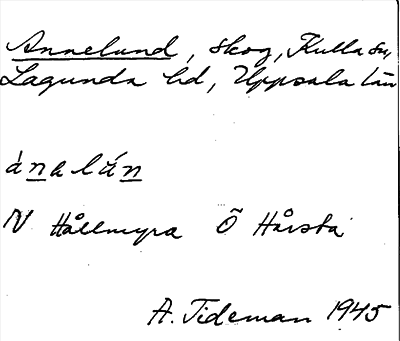 Annelund, skog, Kulla sn,
Lagunda hd, Uppsala län
ànalán
N Hållmyra Ö Hårsta
A. Tideman 1945